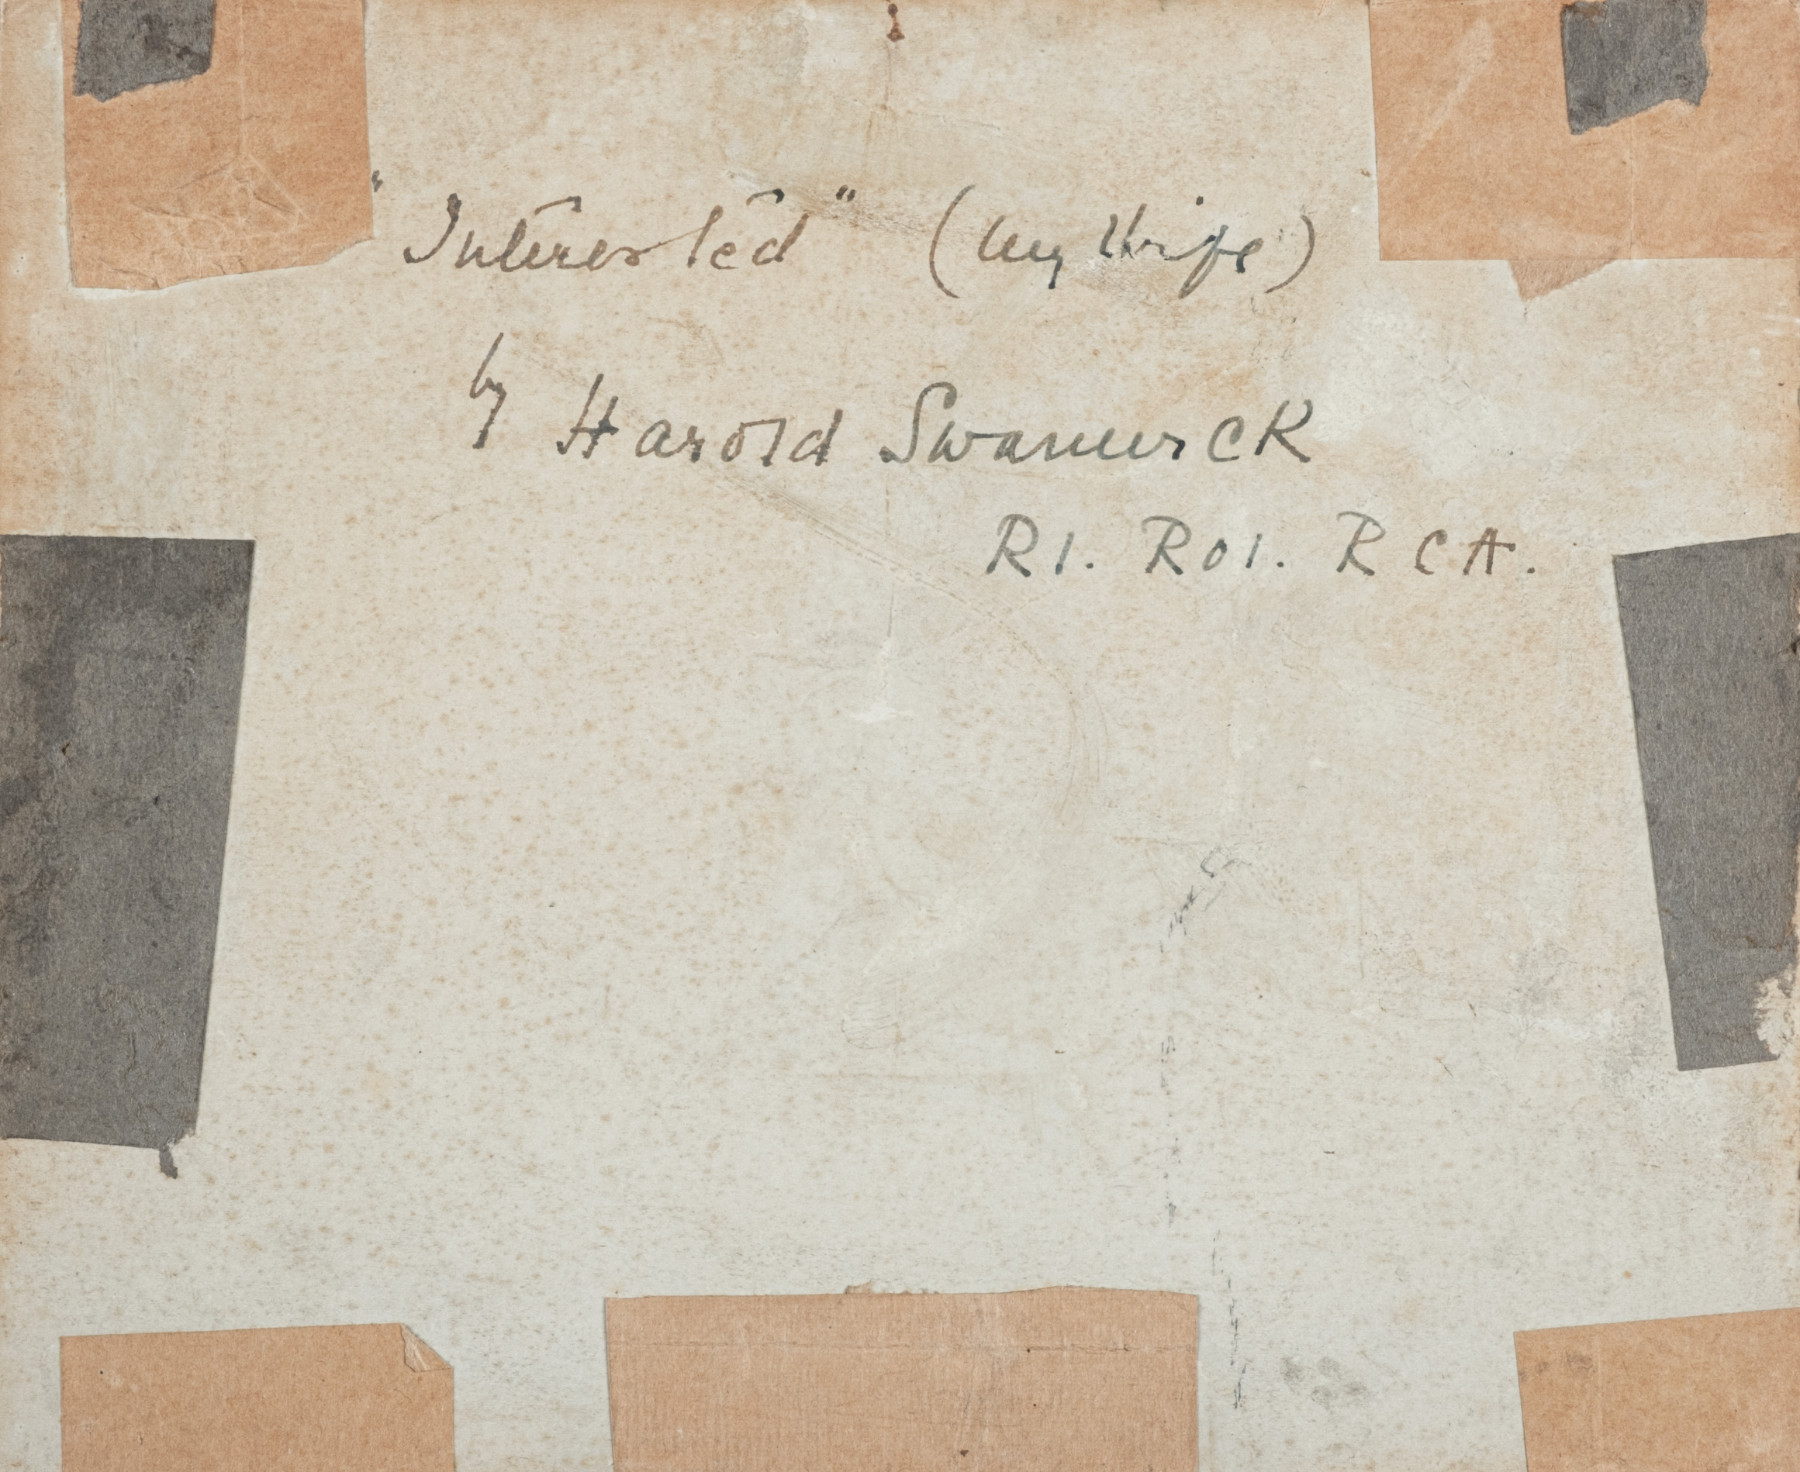 "Interested" (My Wife)
by Harold Swanwick
RI. ROI. RCA.